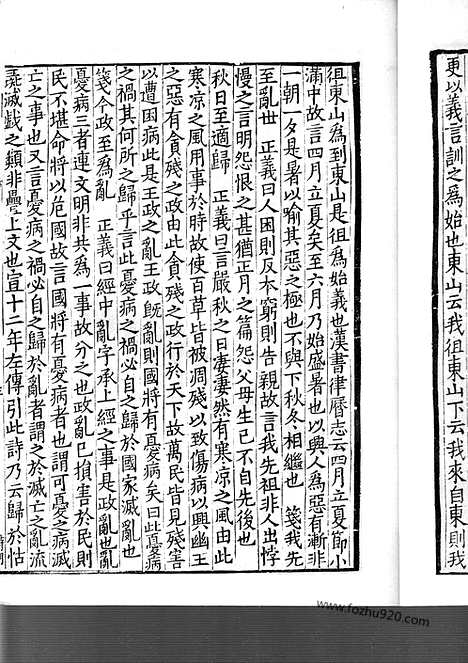 更以義言訓之爲始也東山云我徂東山下云我來自東則我
徂東山爲到東山是徂爲始義也漢書律曆志云四月立夏節小
滿中故言四月立夏矣至六月乃始盛暑也以興人爲惡有漸非
一朝一夕是暑以喻其惡之極也不與下秋冬相繼也 箋我先
至亂世 正義曰人困則反本窮則告親故言我先祖非人出悖
慢之言明怨恨之甚猶正月之篇怨父母生己不自先後也
秋日至適歸 正義曰言嚴秋之日凄凄然有寒凉之風由此
寒凉之風用事於時故使百草皆被凋殘以致傷病以興幽王
之惡有貪殘之政由此貪殘之政行於天下故萬民皆見殘害
以遭困病此是王政之亂王政旣亂則國將有憂病矣曰此憂病
之禍其何所之歸乎言此憂病之禍必自之歸於國家滅亂也
箋今政至爲亂 正義曰經中亂字承上經之事是政亂也亂
憂病三者連文明非共爲一事故分之也政亂已損害於民則
民不堪命將以危國故言國將有憂病者也謂可憂之病滅
亡之事也又言憂病之禍必自之歸於亂者謂之於滅亡之亂流
彘滅戲之類非疊上文也宣十二年左傳引此詩乃云歸於怙
www.fozhu920.com